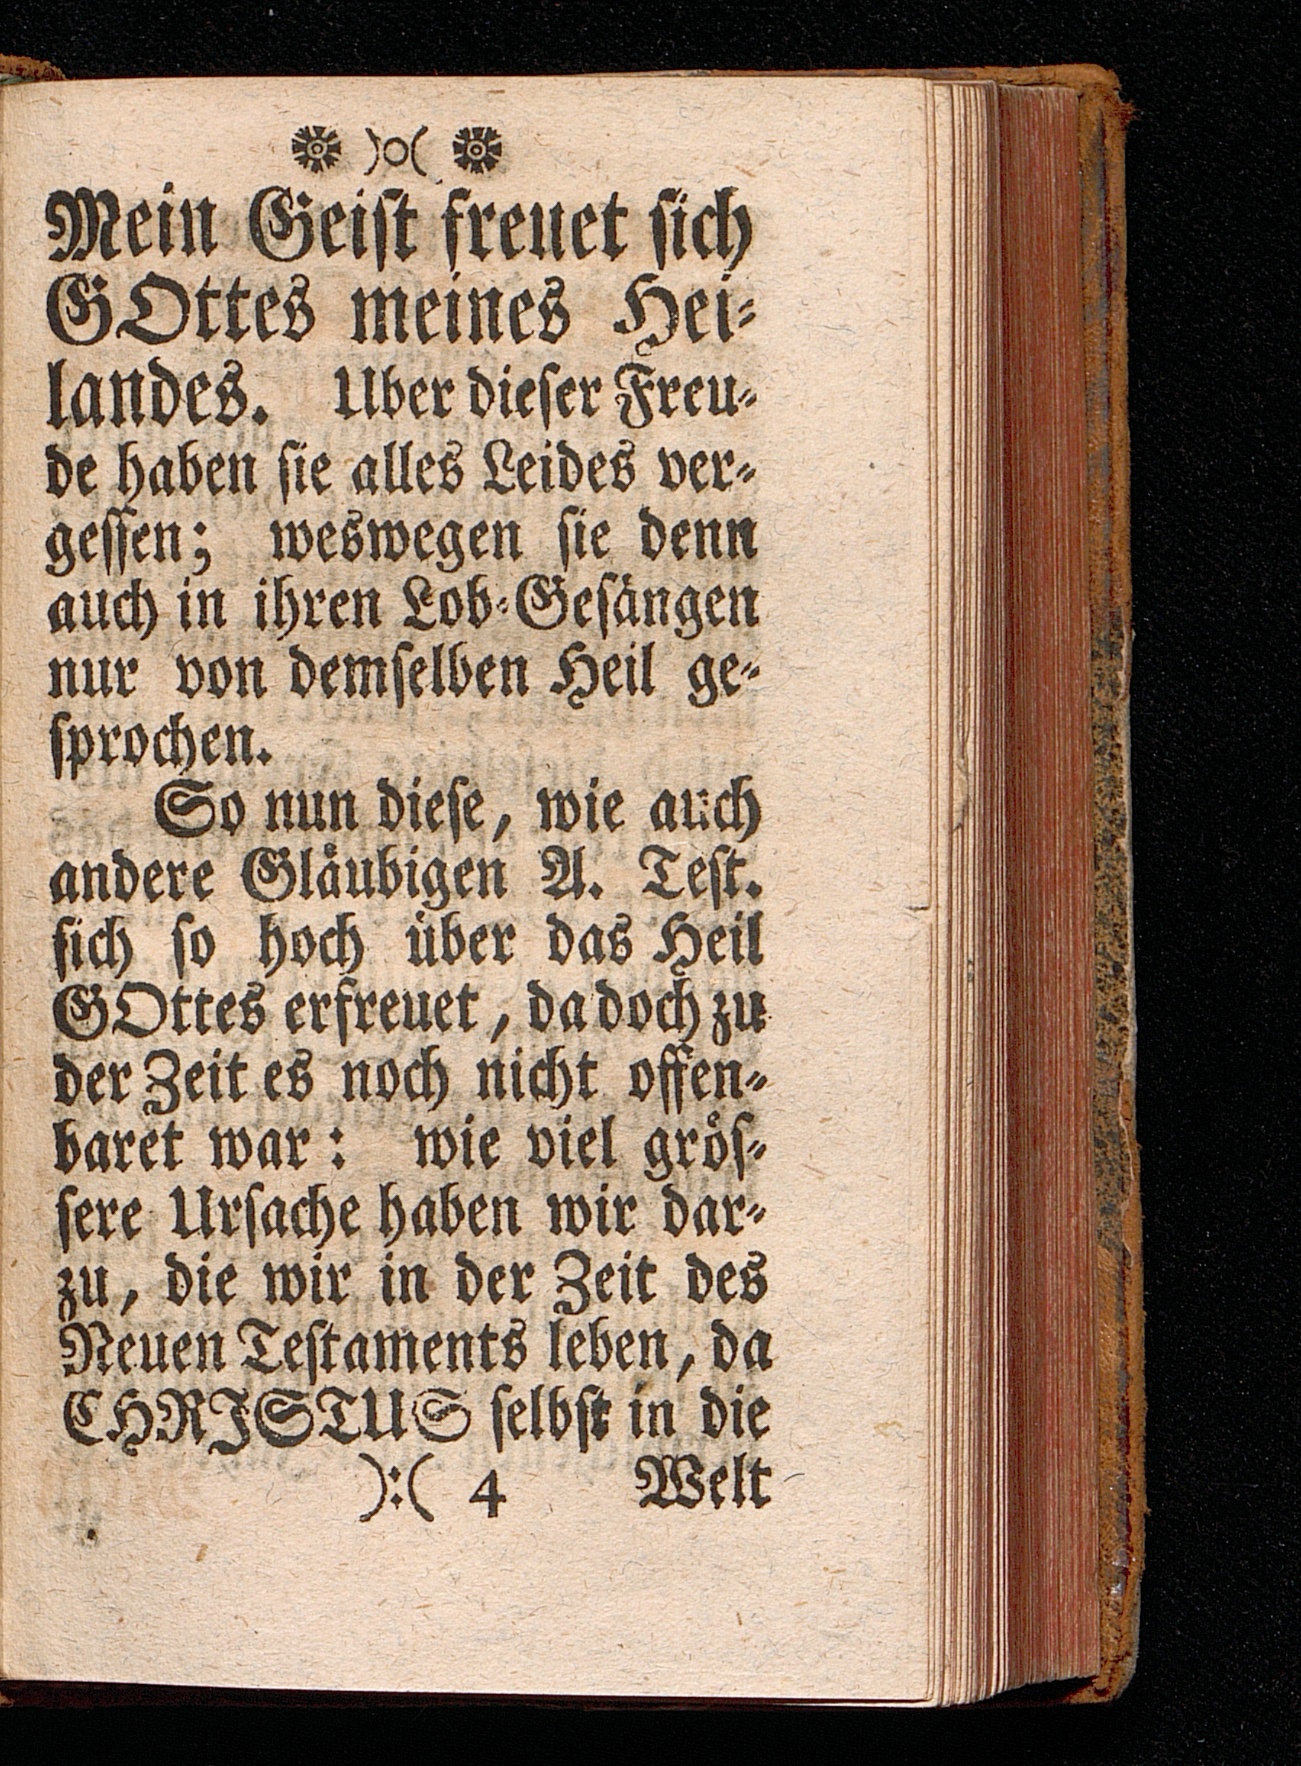 ❁ )o( ❁
Mein Geist freuet sich
GOttes meines Hei-
landes. Uber dieser Freu-
de haben sie alles Leides ver-
gessen; weswegen sie denn
auch in ihren Lob-Gesängen
nur von demselben Heil ge-
sprochen.
So nun diese, wie auch
andere Gläubigen A. Test.
sich so hoch über das Heil
GOttes erfreuet, da doch zu
der Zeit es noch nicht offen-
baret war: wie viel grös-
sere Ursache haben wir dar-
zu, die wir in der Zeit des
Neuen Testaments leben, da
CHRJSTUS selbst in die
):( 4 Welt